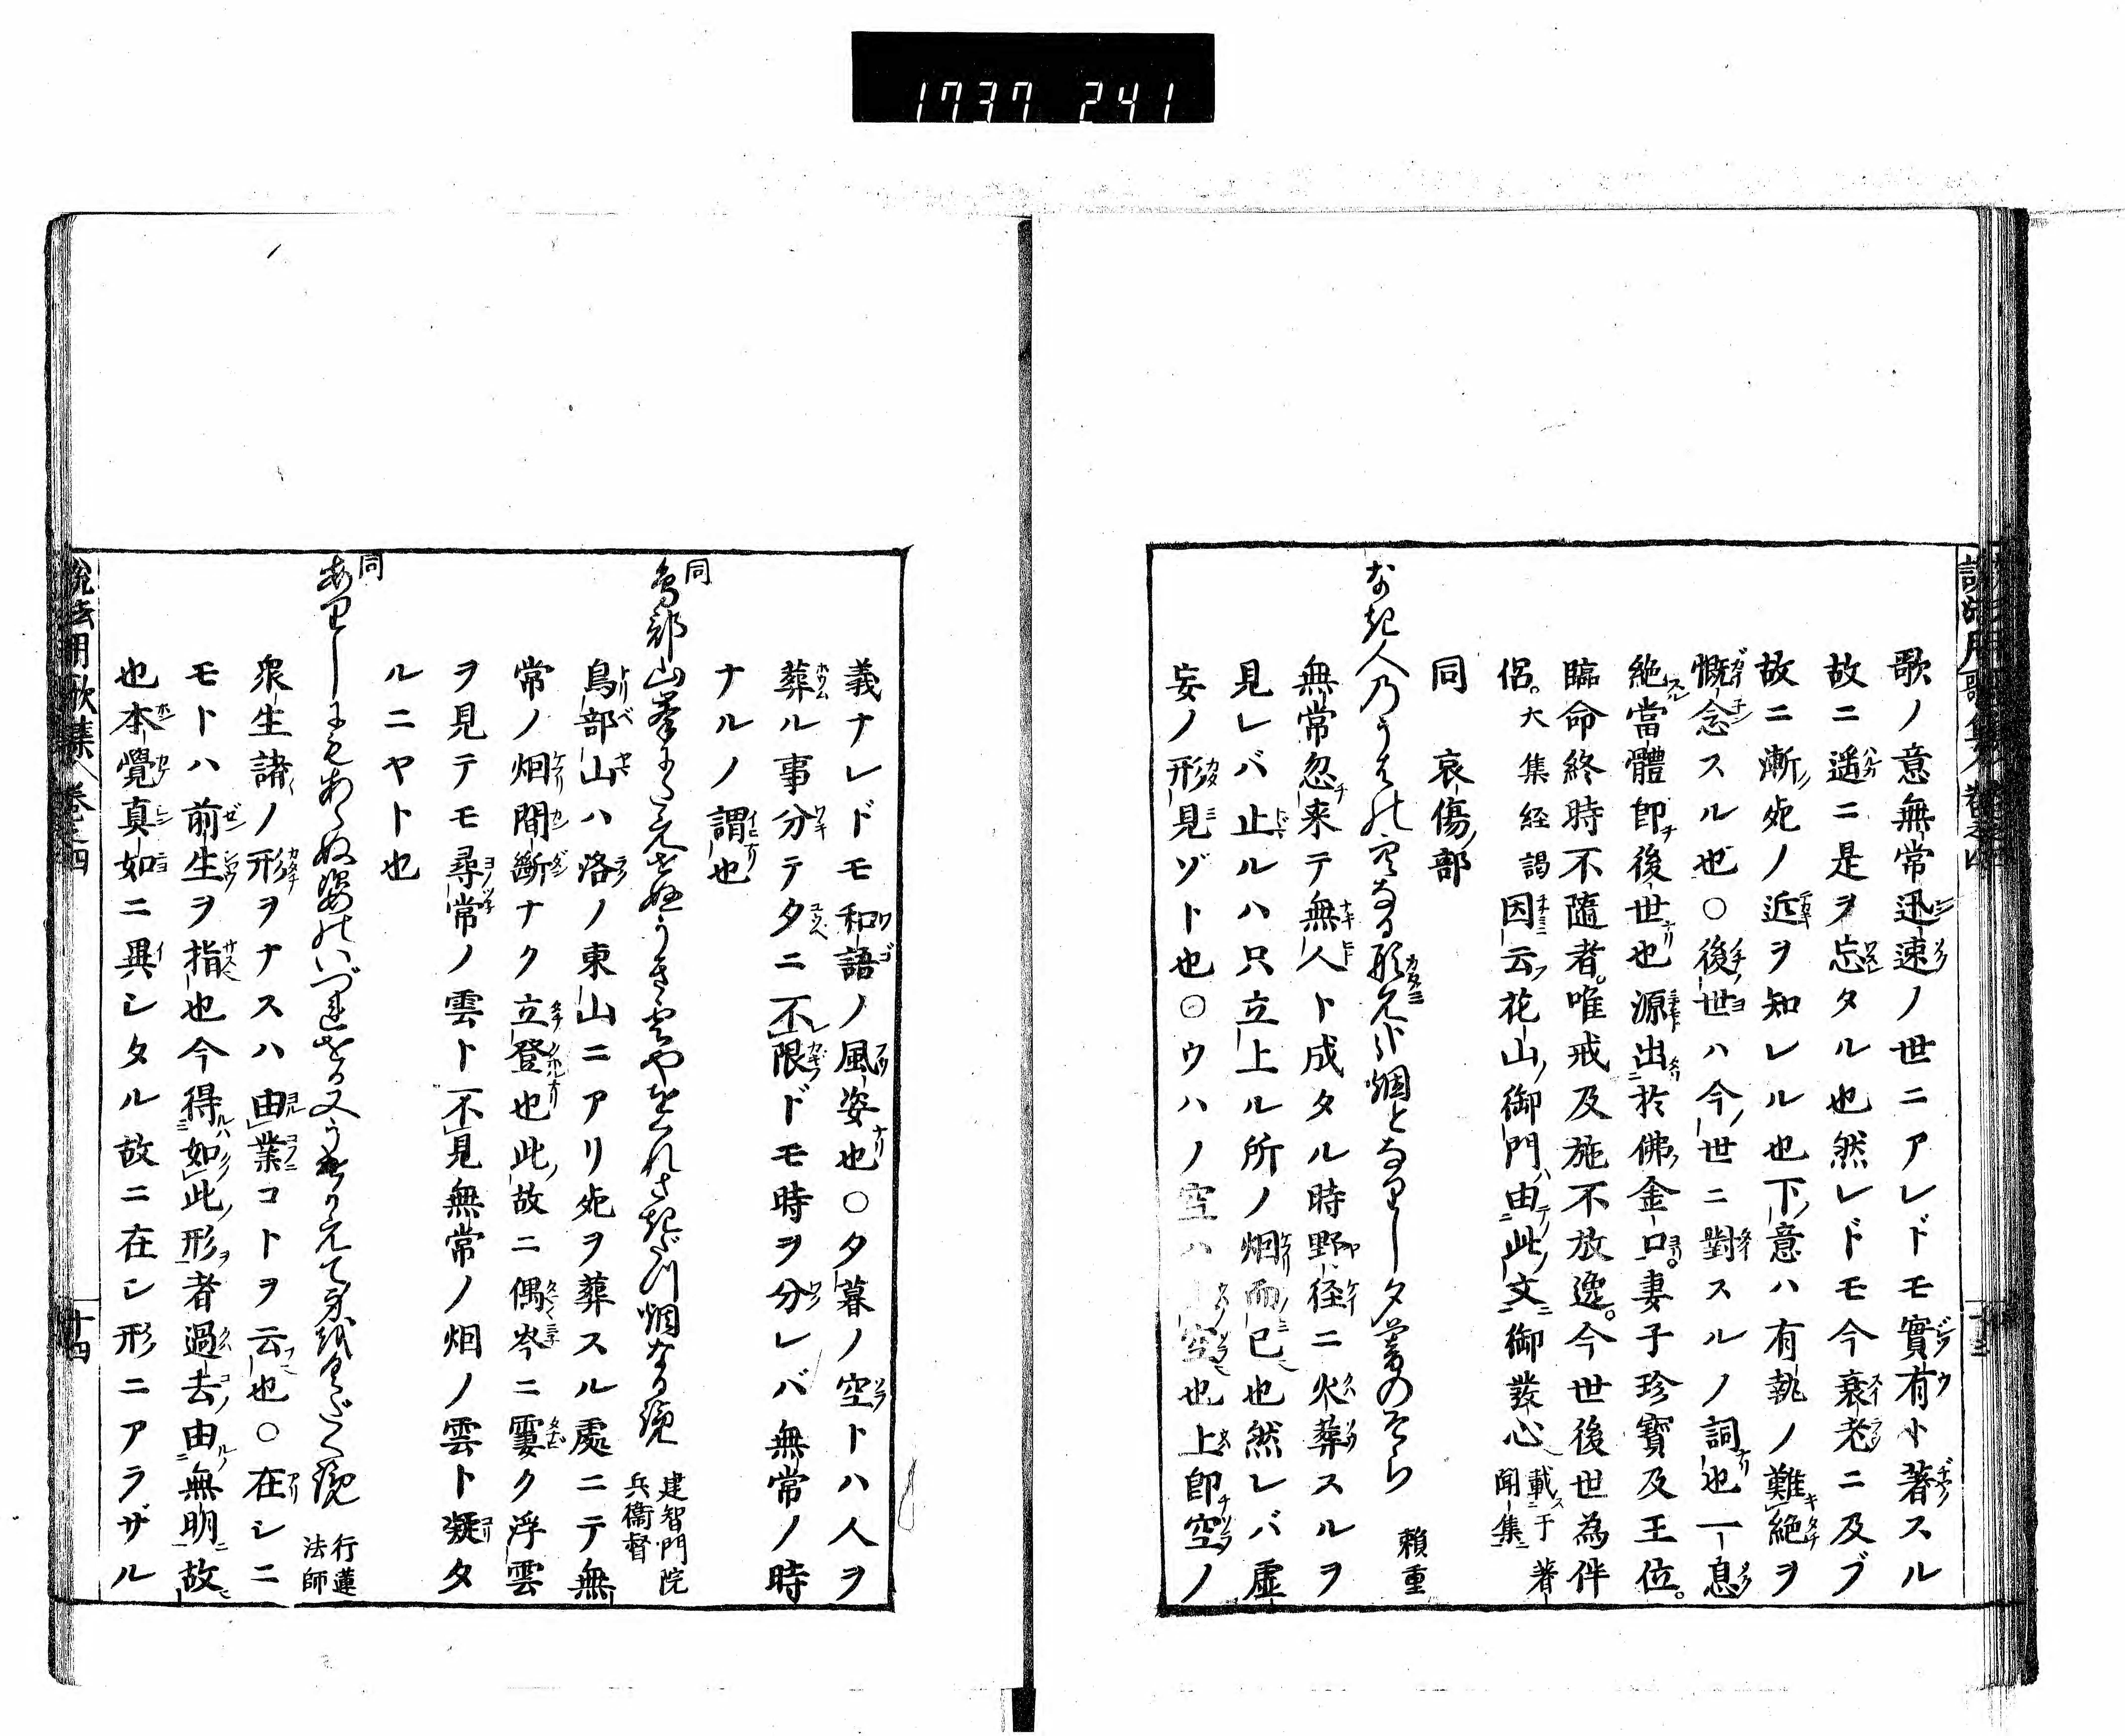 1737 241
歌ノ意無常迅速ノ世ニアレドモ實有ト著スル
故ニ遥ニ是ヲ忘タル也然レドモ今衰老ニ及ブ
故ニ漸死ノ近ヲ知レル也下意ハ有執ノ難絶ヲ
慨念スル也○後世ハ今世ニ對スルノ詞也一息
絶當體即後世也源出於佛金口。妻子珍寶及王位。
臨命終時不隨者。唯戒及施不放逸。今世後世為伴
侶。大集経謁因云花山御門由此文御發心載于著聞集
同 哀傷部
なき人のうはの空なる形見は烟となりし夕暮のそら 頼重
無常忽来テ無人ト成タル時野径ニ火葬スルヲ
見レバ止ルハ只立上ル所ノ烟而已也然レバ虚
妄ノ形見ゾト也○ウハノ空ハ空也上即空ノ
義ナレドモ和語ノ風姿也○夕暮ノ空トハ人ヲ
葬ル事分テ夕ニ不限ドモ時ヲ分レバ無常ノ時
ナルノ謂也
同
鳥部山峯に
烟なる覧 建智門院兵衞督
鳥部山ハ洛ノ東山ニアリ死ヲ葬スル處ニテ無
常ノ烟間斷ナク立登也此故ニ偶岑ニ霎ク浮雲
ヲ見テモ尋常ノ雲ト不見無常ノ烟ノ雲ト凝タ
ルニヤト也
同
ありしにもあらぬ姿の 行蓮法師
衆生諸ノ形ヲナスハ由業コトヲ云也○在シニ
モトハ前生ヲ指也今得如此形者過去由無明故
也本覺真如ニ異シタル故ニ在シ形ニアラザル
説法用歌集 巻之四 十四